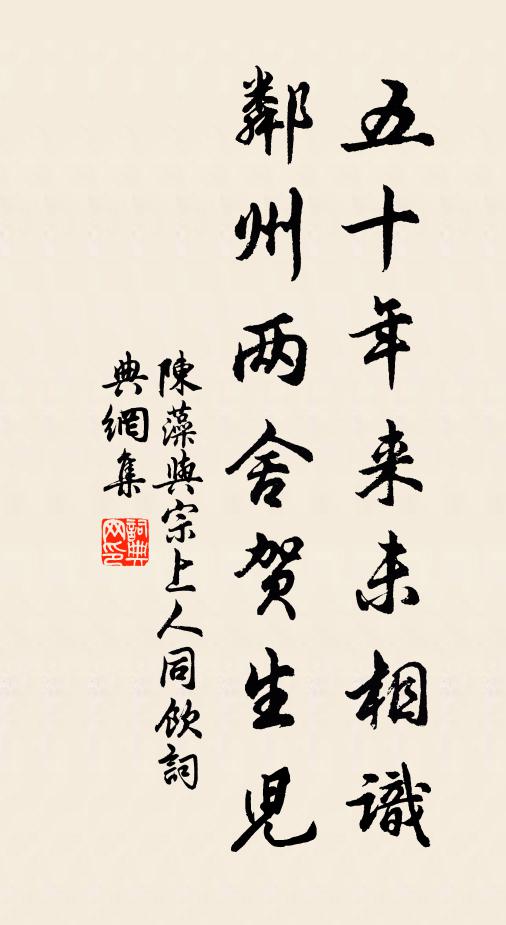 五十年来未相識
鄰州两舍贺生児
陳藻與宗上人同飲詞
典網集
詞典
网印